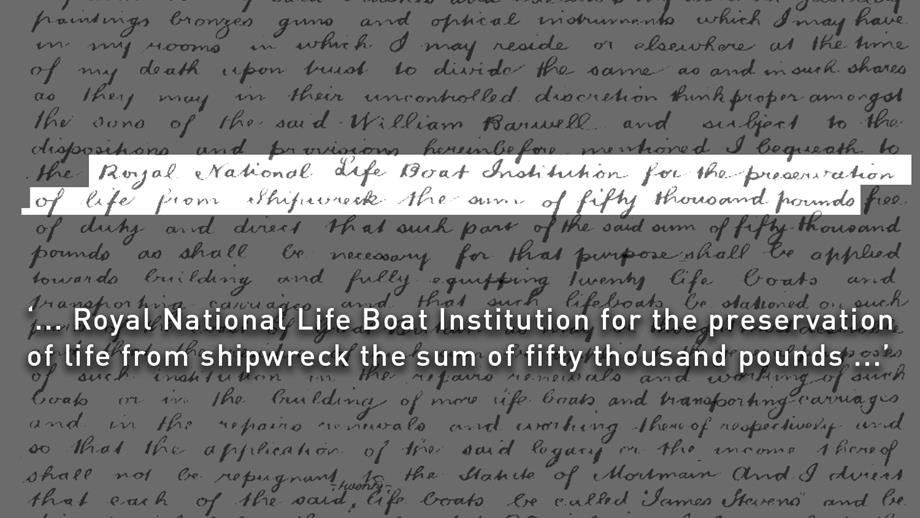 paintings bronzes guns and optical instruments which I may have
in my rooms in which I may reside or elsewhere at the time
of my death upon trust to divide the same as and in such shares
as they may in their uncontrolled discretion think proper amongst
the sons of the said William Barwell and subject to the
dispositions and provisions hereinbefore mentioned I bequeath to
the Royal National Life Boat Institution for the preservation
of life from shipwreck the sum of fifty thousand pounds free
of duty and direct that such part of the said sum of fifty thousand
pounds as shall be necessary for that purpose shall be applied
towards building and fully equipping twenty life boats and
transporting carriages and that such lifeboats be stationed on such
‘... Royal National Life Boat Institution for the preservation
of life from shipwreck the sum of fifty thousand pounds ...’
of such institution in the repairs renewals and working of such
boats or in the building of more life boats and transporting carriages
and in the repairs renewals and working thereof respectively and
so that the application of the said legacy or the income thereof
shall not be repugnant to the Statute of Mortmain And I direct
twenty
that each of the said life boats be called 'James Stevens' and be